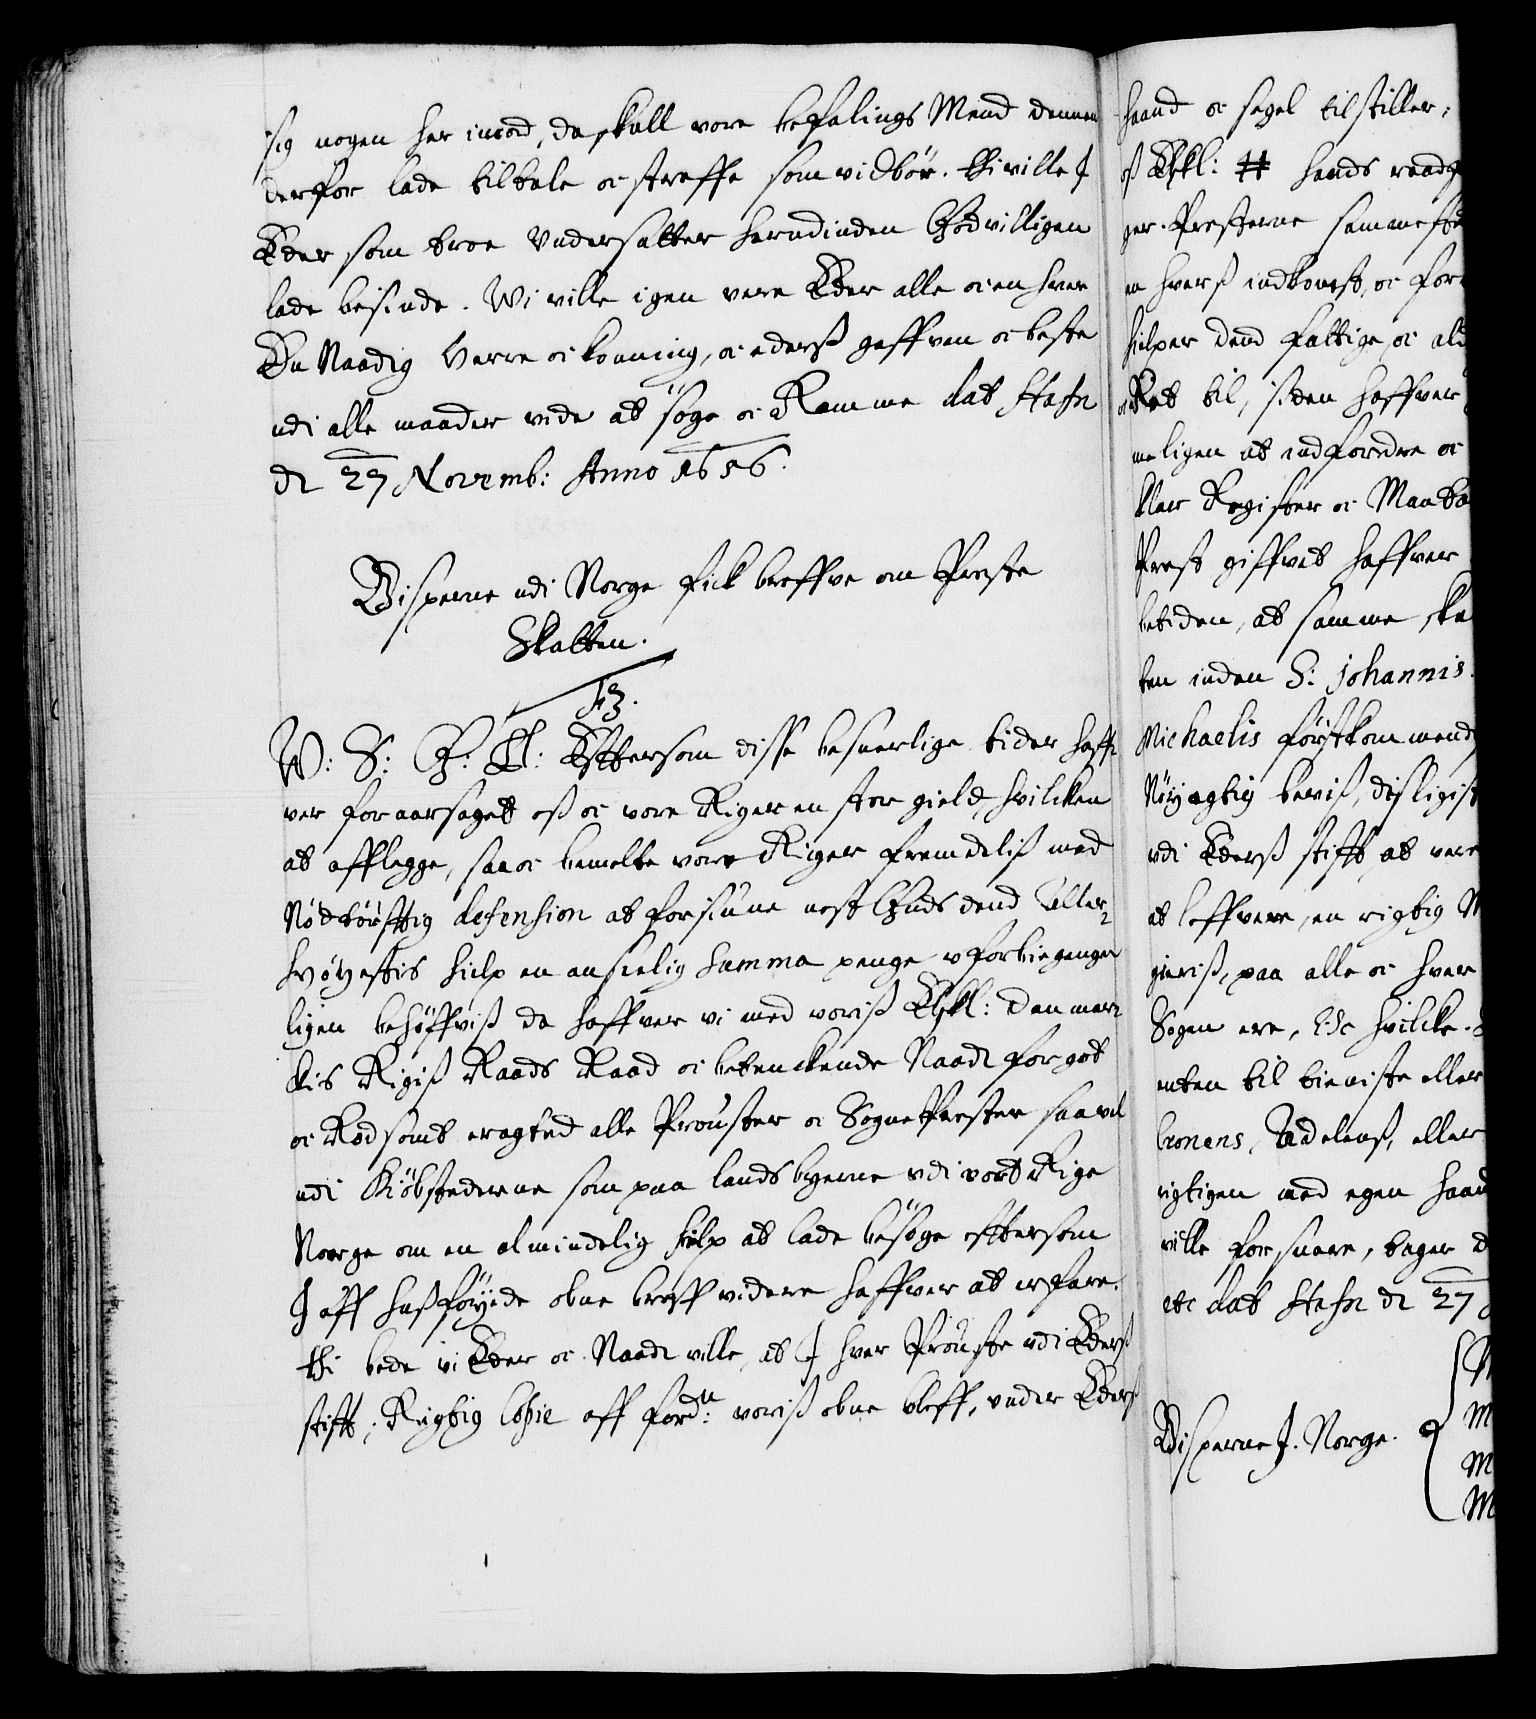 sig nogen her imod, da skall vore befalings Mend dennem
derfor lade tiltale oc straffe som vidbör. thi ville J
Eder som troe Vndersatter herudinden Godvilligen
lade befinde. Wi ville igen vere Eder alle oc en hver
En Naadig Herre oc konning, oc ederß gaffven oc beste
udi alle maader vide at söge oc Ramme dat Hafn
dn 27 Novemb: Anno 1656.
Bisperne udi Norge fick breffve om Preste
Skatten.
F3.
W: S: G: T: Efttersom disse besuerlige tider haff=
ver foraarsaget oß oc vore Riger en stor gield, hvilcken
at afflegge, saa oc bemelte vore Riger fremdeliß med
Nödtörfttig defension at forsiune nest Guds dend Aller=
Höyestis hielp en anseelig Summa penge uforbiegenge=
ligen behöffviß da haffver vi med voriß Elskl: Danmar=
ckis Rigiß Raads Raad oc betenckende Naadl for got
oc Rodsomt eragted alle Prouster oc SognePrester saa vel
udi Kiöbstederne som paa landsbyerne udi vort Rige
Norge om en almindelig hielp at lade besöge efttersom
J aff hoßföyede obne breff videre haffver at erfare.
thi bede vi Eder oc Naadl ville, at J hver Prouste udi Ederß
stifft, Rigtig Copie aff fordn: voriß obne breff, under Ederß
haand oc segel tilstiller,
oß Elskl: # hands raad
ger. Presterne sammesteds
en hverß indkomst, oc for
hielper dend fattige, oc ald
oc Ret til, siden haffver
meligen at indfordre oc
klar Register oc Mandta
Prest giffvet haffver
betiden, at samme ska
ten inden S: Johannis.
Michaelis förstkommend
Nöyagtig beviß, disligist
udi Ederß stifft at vere
at leffvere, en rigtig M
gieriß, paa alle oc hver
Sogen ere, Etc hvilcke
enten til tieniste eller
Cronens, Adelenß, eller
rigtigen med egen haand
ville forsvare, tager d
etc dat Hafn dn 27
Bisperne J. Norge.
M
M
M
M